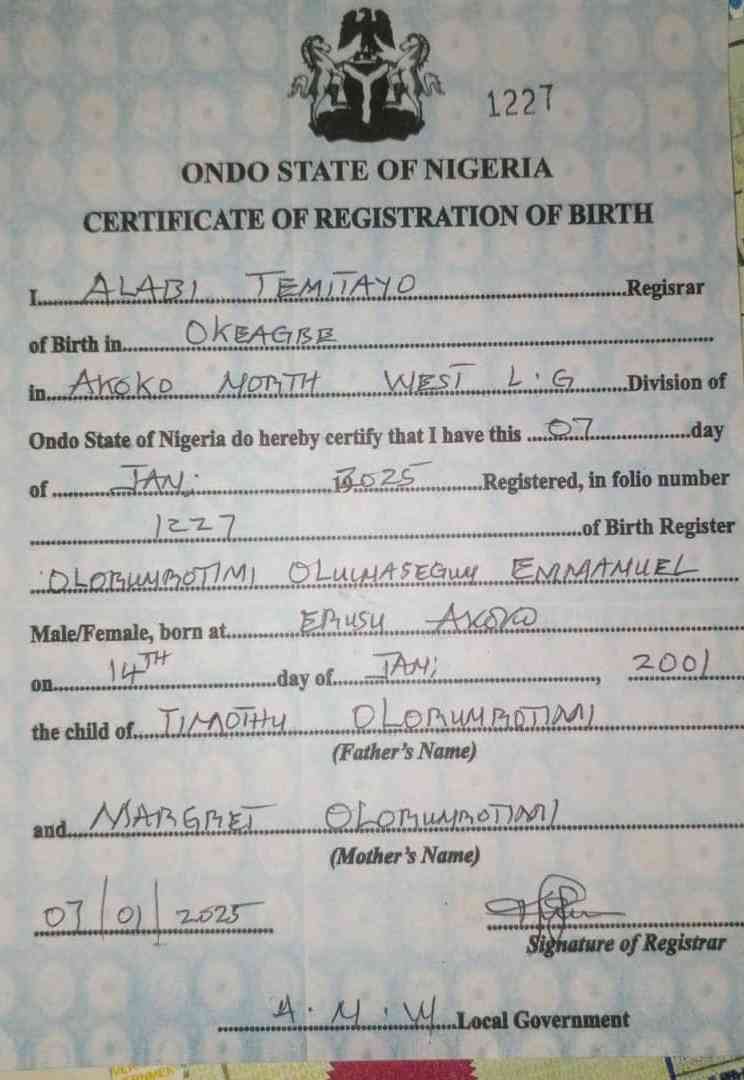 1227
ONDO STATE OF NIGERIA
CERTIFICATE OF REGISTRATION OF BIRTH
I ALABI TEMITAYO Regisrar
of Birth in OKEAGBE
in AKOKO NORTH WEST L.G Division of
Ondo State of Nigeria do hereby certify that I have this 07 day
of JAN; 2025 Registered, in folio number
1227 of Birth Register
OLORUNROTIMI OLUWASEGUN EMMANUEL
Male/Female, born at ERUSU AKOKO
on 14TH day of JAN; , 2001
the child of TIMOTHY OLORUNROTIMI
(Father's Name)
and MARGRET OLORUNROTIMI
(Mother's Name)
07/01/2025
Signature of Registrar
A.N.W Local Government